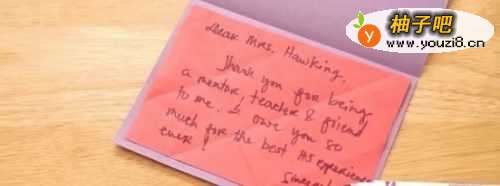 柚子吧
www.youzi8.cn
Dear Mrs. Hawking,
Thank you for being
a mentor, teacher & friend
to me. I owe you so
much for the best HS experience
ever!